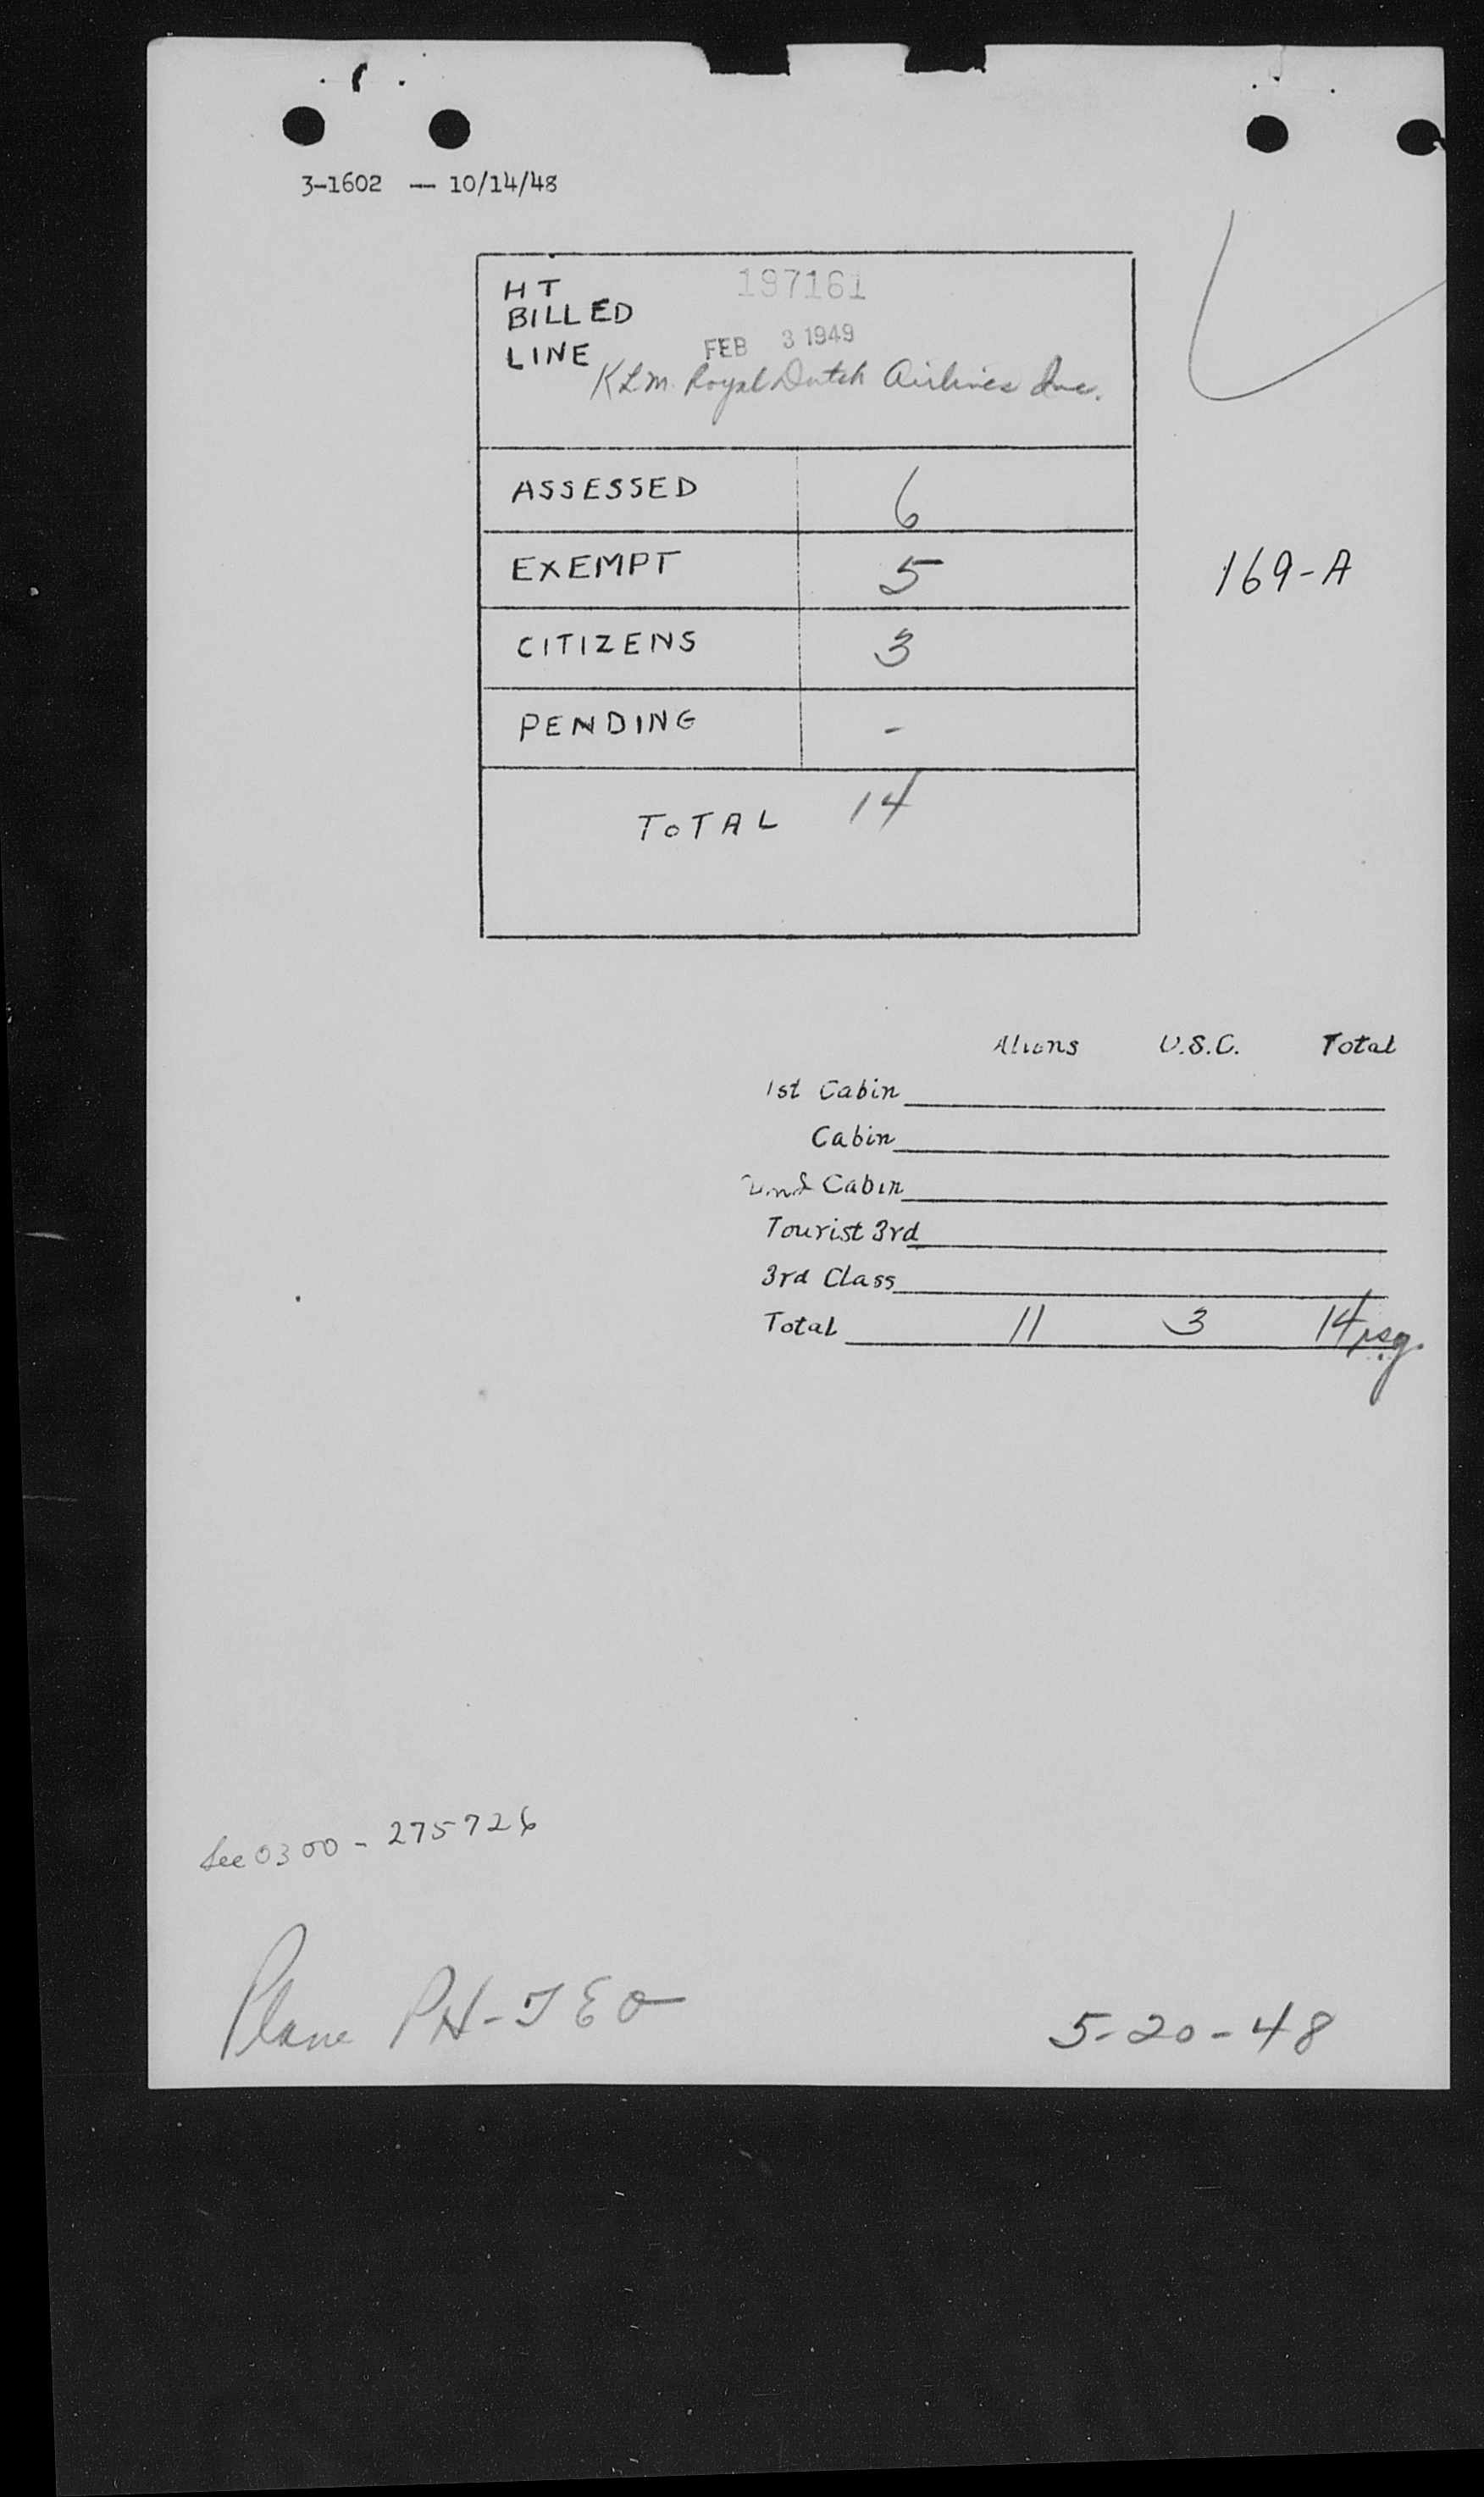 3-1602 — 10/14/48
HT 197161
BILLED
LINE FEB 3 1949
KLM Royal Dutch Airlines Inc.
ASSESSED 6
EXEMPT 5
169-A
CITIZENS 3
PENDING -
TOTAL 14
Aliens U.S.C. Total
1st Cabin
Cabin
2nd Cabin
Tourist 3rd
3rd Class
Total 11 3 14 psg.
See 0300-275726
Plane PH-TEO
5-20-48